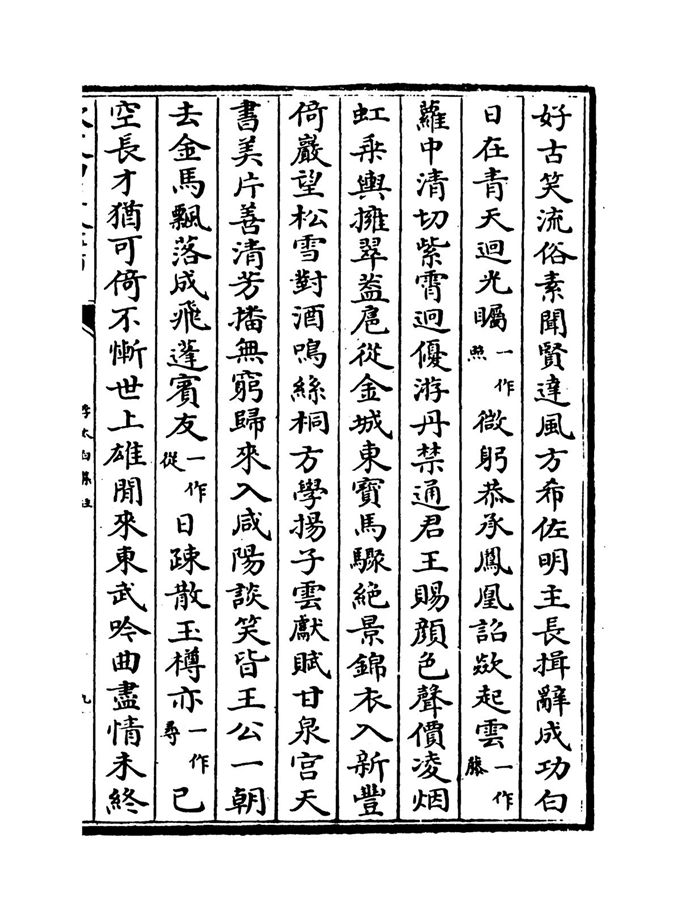 好古笑流俗素聞賢達風方希佐明主長揖辭成功白
日在青天迴光矚一作照微躬恭承鳳凰詔欻起雲一作藤
蘿中清切紫霄迥優游丹禁通君王賜顏色聲價凌烟
虹乗輿擁翠葢扈從金城東寶馬驟絶景錦衣入新豐
倚巖望松雪對酒鳴絲桐方學揚子雲獻賦甘泉宫天
書美片善清芳播無窮歸來入咸陽談笑皆王公一朝
去金馬飄落成飛蓬賓友一作從日疎散玉樽亦一作尋已
空長才猶可倚不慚世上雄閒來東武吟曲盡情未終
李太白集注
九